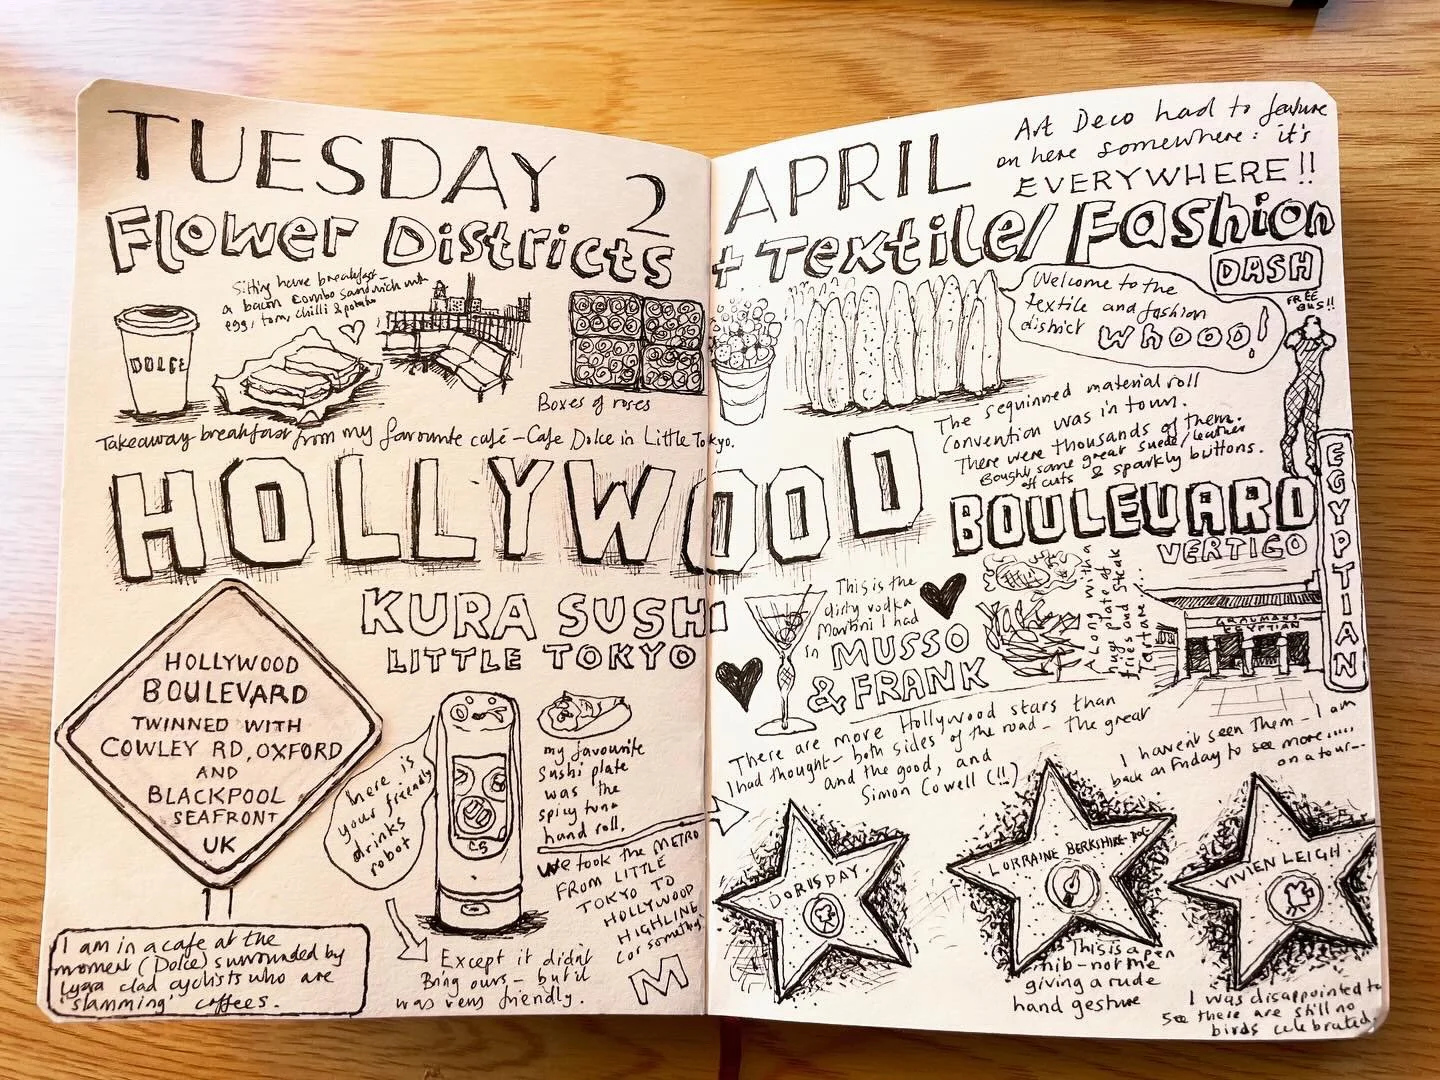 TUESDAY 2 APRIL
Art Deco had to feature
on here somewhere: it's
EVERYWHERE!!
Flower Districts + Textile/Fashion
DASH
FREE
BUS!!
Sitting here breakfast -
a bacon combo sandwich with
egg, tom, chilli & potato
DOLCE
Boxes of roses
Takeaway breakfast from my favourite café - Cafe Dolce in Little Tokyo.
Welcome to the
textile and fashion
district WHOOO!
The sequinned material roll
convention was in town.
There were thousands of them.
Bought some great suede/leather
off cuts & sparkly buttons.
HOLLYWOOD
BOULEVARD
VERTIGO
EGYPTIAN
GRAUMANS
EGYPTIAN
KURA SUSHI
LITTLE TOKYO
HOLLYWOOD
BOULEVARD
TWINNED WITH
COWLEY RD, OXFORD
AND
BLACKPOOL
SEAFRONT
UK
I am in a cafe at the
moment (Dolce) surrounded by
lycra clad cyclists who are
'slamming' coffees.
here is
your friendly
drinks
robot
Except it didn't
Bring ours - but it
was very friendly.
my favourite
sushi plate
was the
spicy tuna
hand roll.
We took the METRO
FROM LITTLE
TOKYO TO
HOLLYWOOD
HIGHLINE
(or something)
M
This is the
dirty vodka
Martini I had
in MUSSO
& FRANK
Along with a
huge plate of
fries and steak
tartare...
There are more Hollywood stars than
I had thought - both sides of the road - the great
and the good, and
Simon Cowell (!!)
I haven't seen them - I am
back on Friday to see more.....
on a tour...
DORIS DAY
LORRAINE BERKSHIRE-ROE
VIVIEN LEIGH
This is a pen
nib - not me
giving a rude
hand gesture
I was disappointed to
see there are still no
birds celebrated.